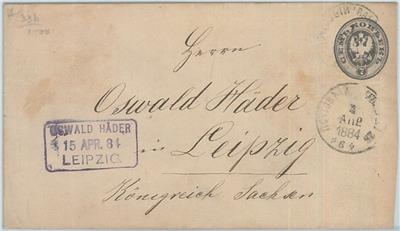 Herrn
Oswald Häder
in Leipzig
Königreich Sachsen
OSWALD HÄDER
15 APR. 84
LEIPZIG.
СЕМЬ КОПѢЕКЪ
7
АПР.
1884